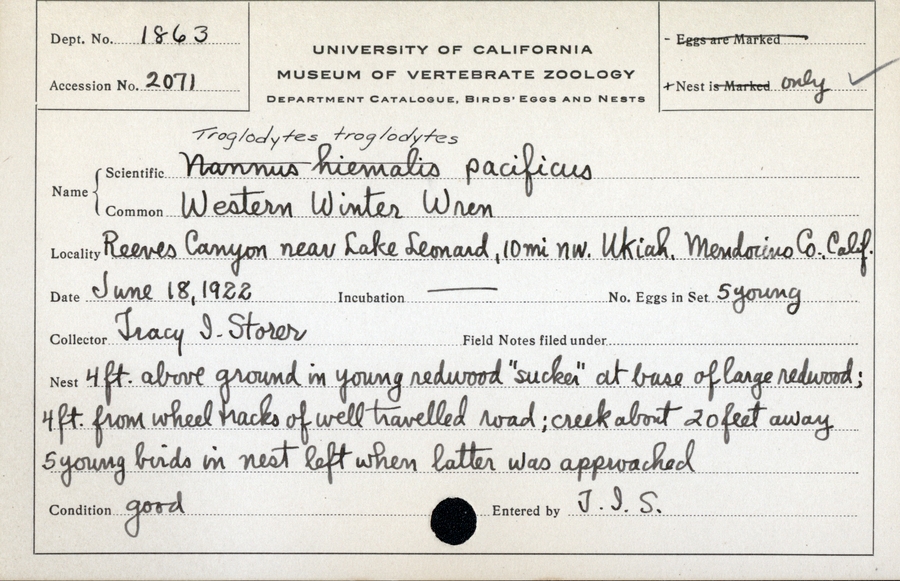 Dept. No. 1863
Accession No. 2071
UNIVERSITY OF CALIFORNIA
MUSEUM OF VERTEBRATE ZOOLOGY
DEPARTMENT CATALOGUE, BIRDS' EGGS AND NESTS
- Eggs are Marked
+ Nest is Marked only ✓
Troglodytes troglodytes
Name { Scientific Nannus hiemalis pacificus
Common Western Winter Wren
Locality Reeves Canyon near Lake Leonard, 10 mi nw. Ukiah, Mendocino Co., Calif.
Date June 18, 1922 Incubation — No. Eggs in Set 5 young
Collector Tracy I. Storer Field Notes filed under
Nest 4 ft. above ground in young redwood "sucker" at base of large redwood;
4 ft. from wheel tracks of well travelled road; creek about 20 feet away
5 young birds in nest left when latter was approached
Condition good Entered by T. I. S.